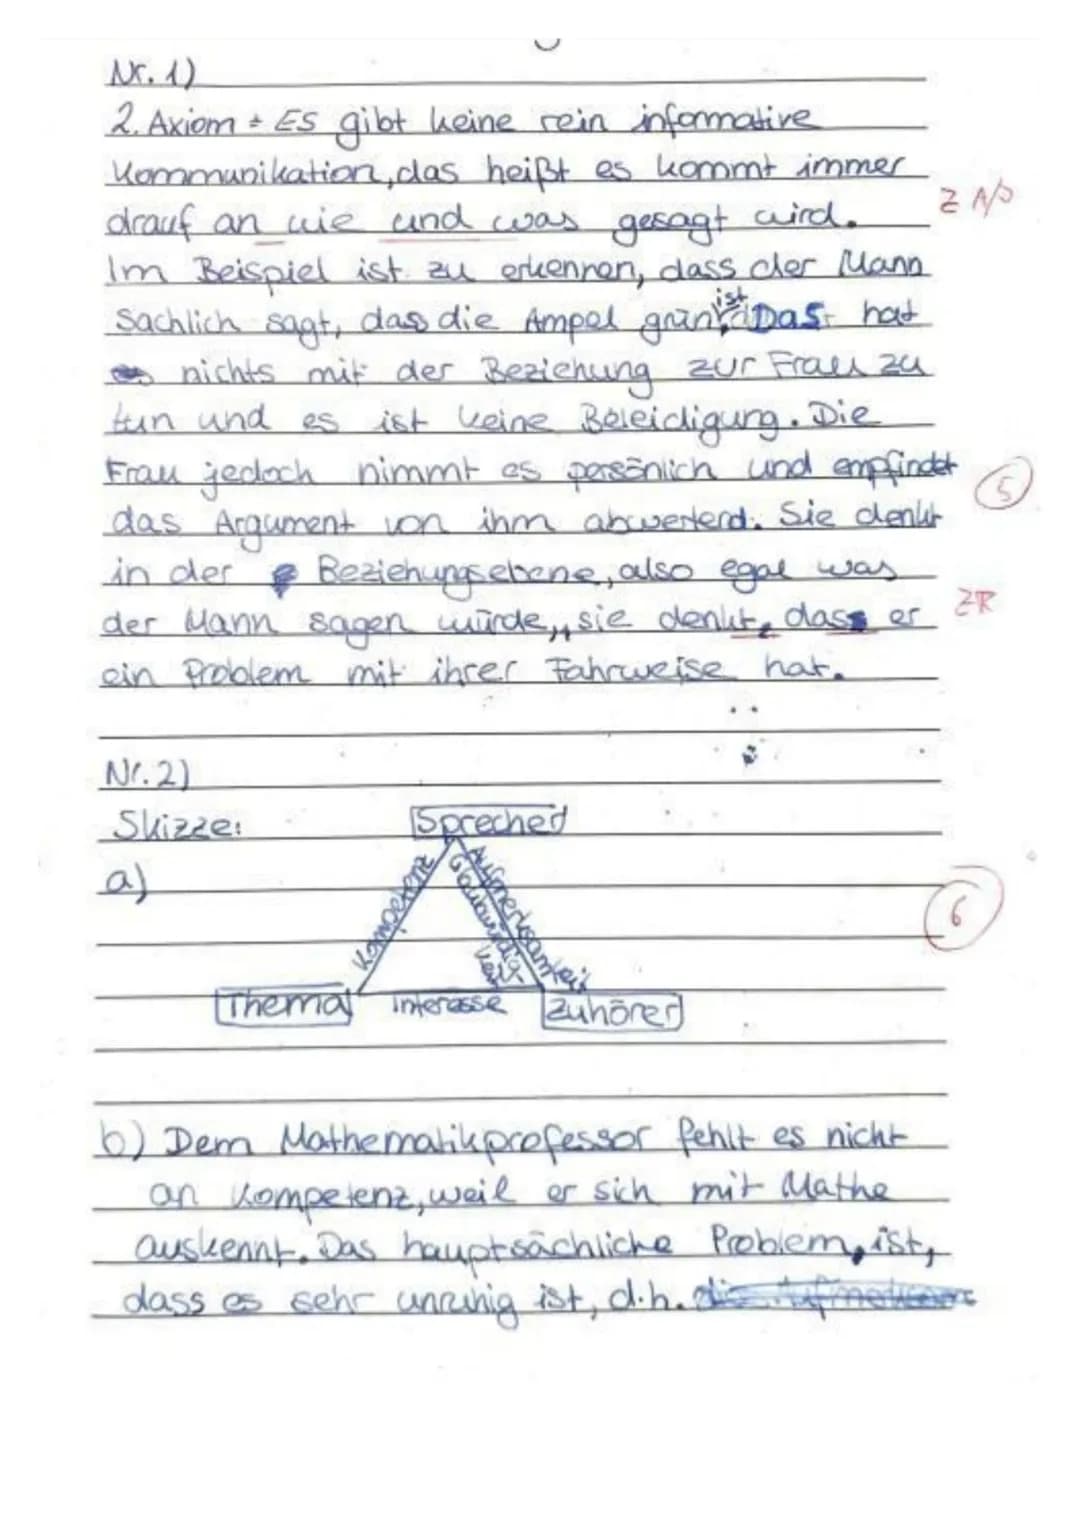 Nr. 1)
2. Axiom = Es gibt keine rein informative
Kommunikation, das heißt es kommt immer
drauf an wie und was gesagt wird.
Z
Im Beispiel ist zu erkennen, dass der Mann
sachlich sagt, dass die Ampel grün ist. Das hat
nichts mit der Beziehung zur Frau zu
tun und es ist keine Beleidigung. Die
Frau jedoch nimmt es persönlich und empfindet
5
das Argument von ihm abwertend. Sie denkt
in der Beziehungsebene, also egal was
der Mann sagen würde, sie denkt, dass er
ZR
ein Problem mit ihrer Fahrweise hat.
Nr. 2)
Skizze:
Sprecher
a)
Kompetenz
Glaubwürdigkeit
Aufmerksamkeit
6
Thema
Interesse
Zuhörer
b) Dem Mathematikprofessor fehlt es nicht
an Kompetenz, weil er sich mit Mathe
auskennt. Das hauptsächliche Problem, ist,
dass es sehr unruhig ist, d.h.